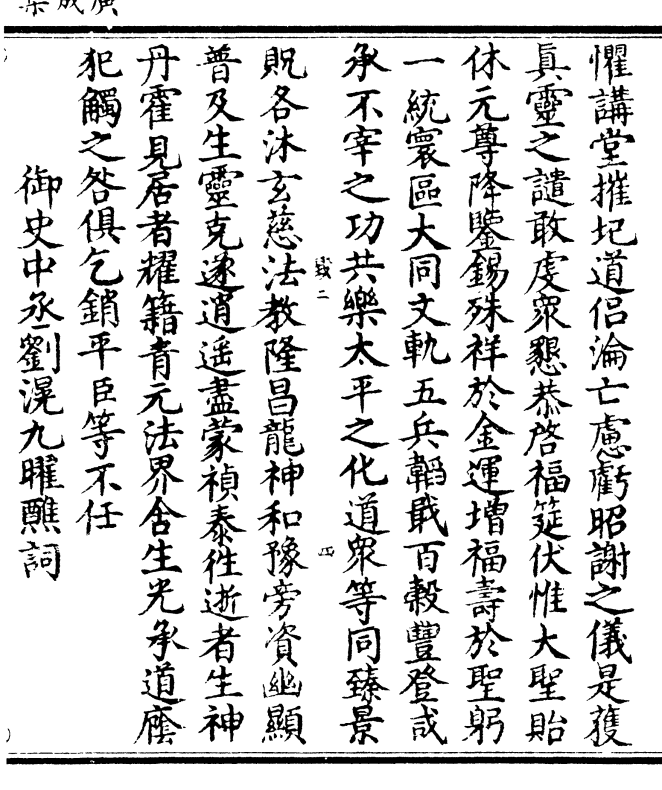 懼講堂摧圮道侶淪亡慮虧昭謝之儀是獲
眞靈之譴敢虔衆懇恭啓福筵伏惟大聖貽
休元尊降鑒錫殊祥於金運增福壽於聖躬
一統寰區大同文軌五兵韜戢百穀豐登咸
承不宰之功共樂太平之化道衆等同臻景
戟二
四
貺各沐玄慈法教隆昌龍神和豫旁資幽顯
普及生靈克遂逍遥盡蒙禎泰徃逝者生神
丹霍見居者耀籍青元法界含生光承道廕
犯觸之咎俱乞銷平臣等不任
御史中丞劉滉九曜醮詞